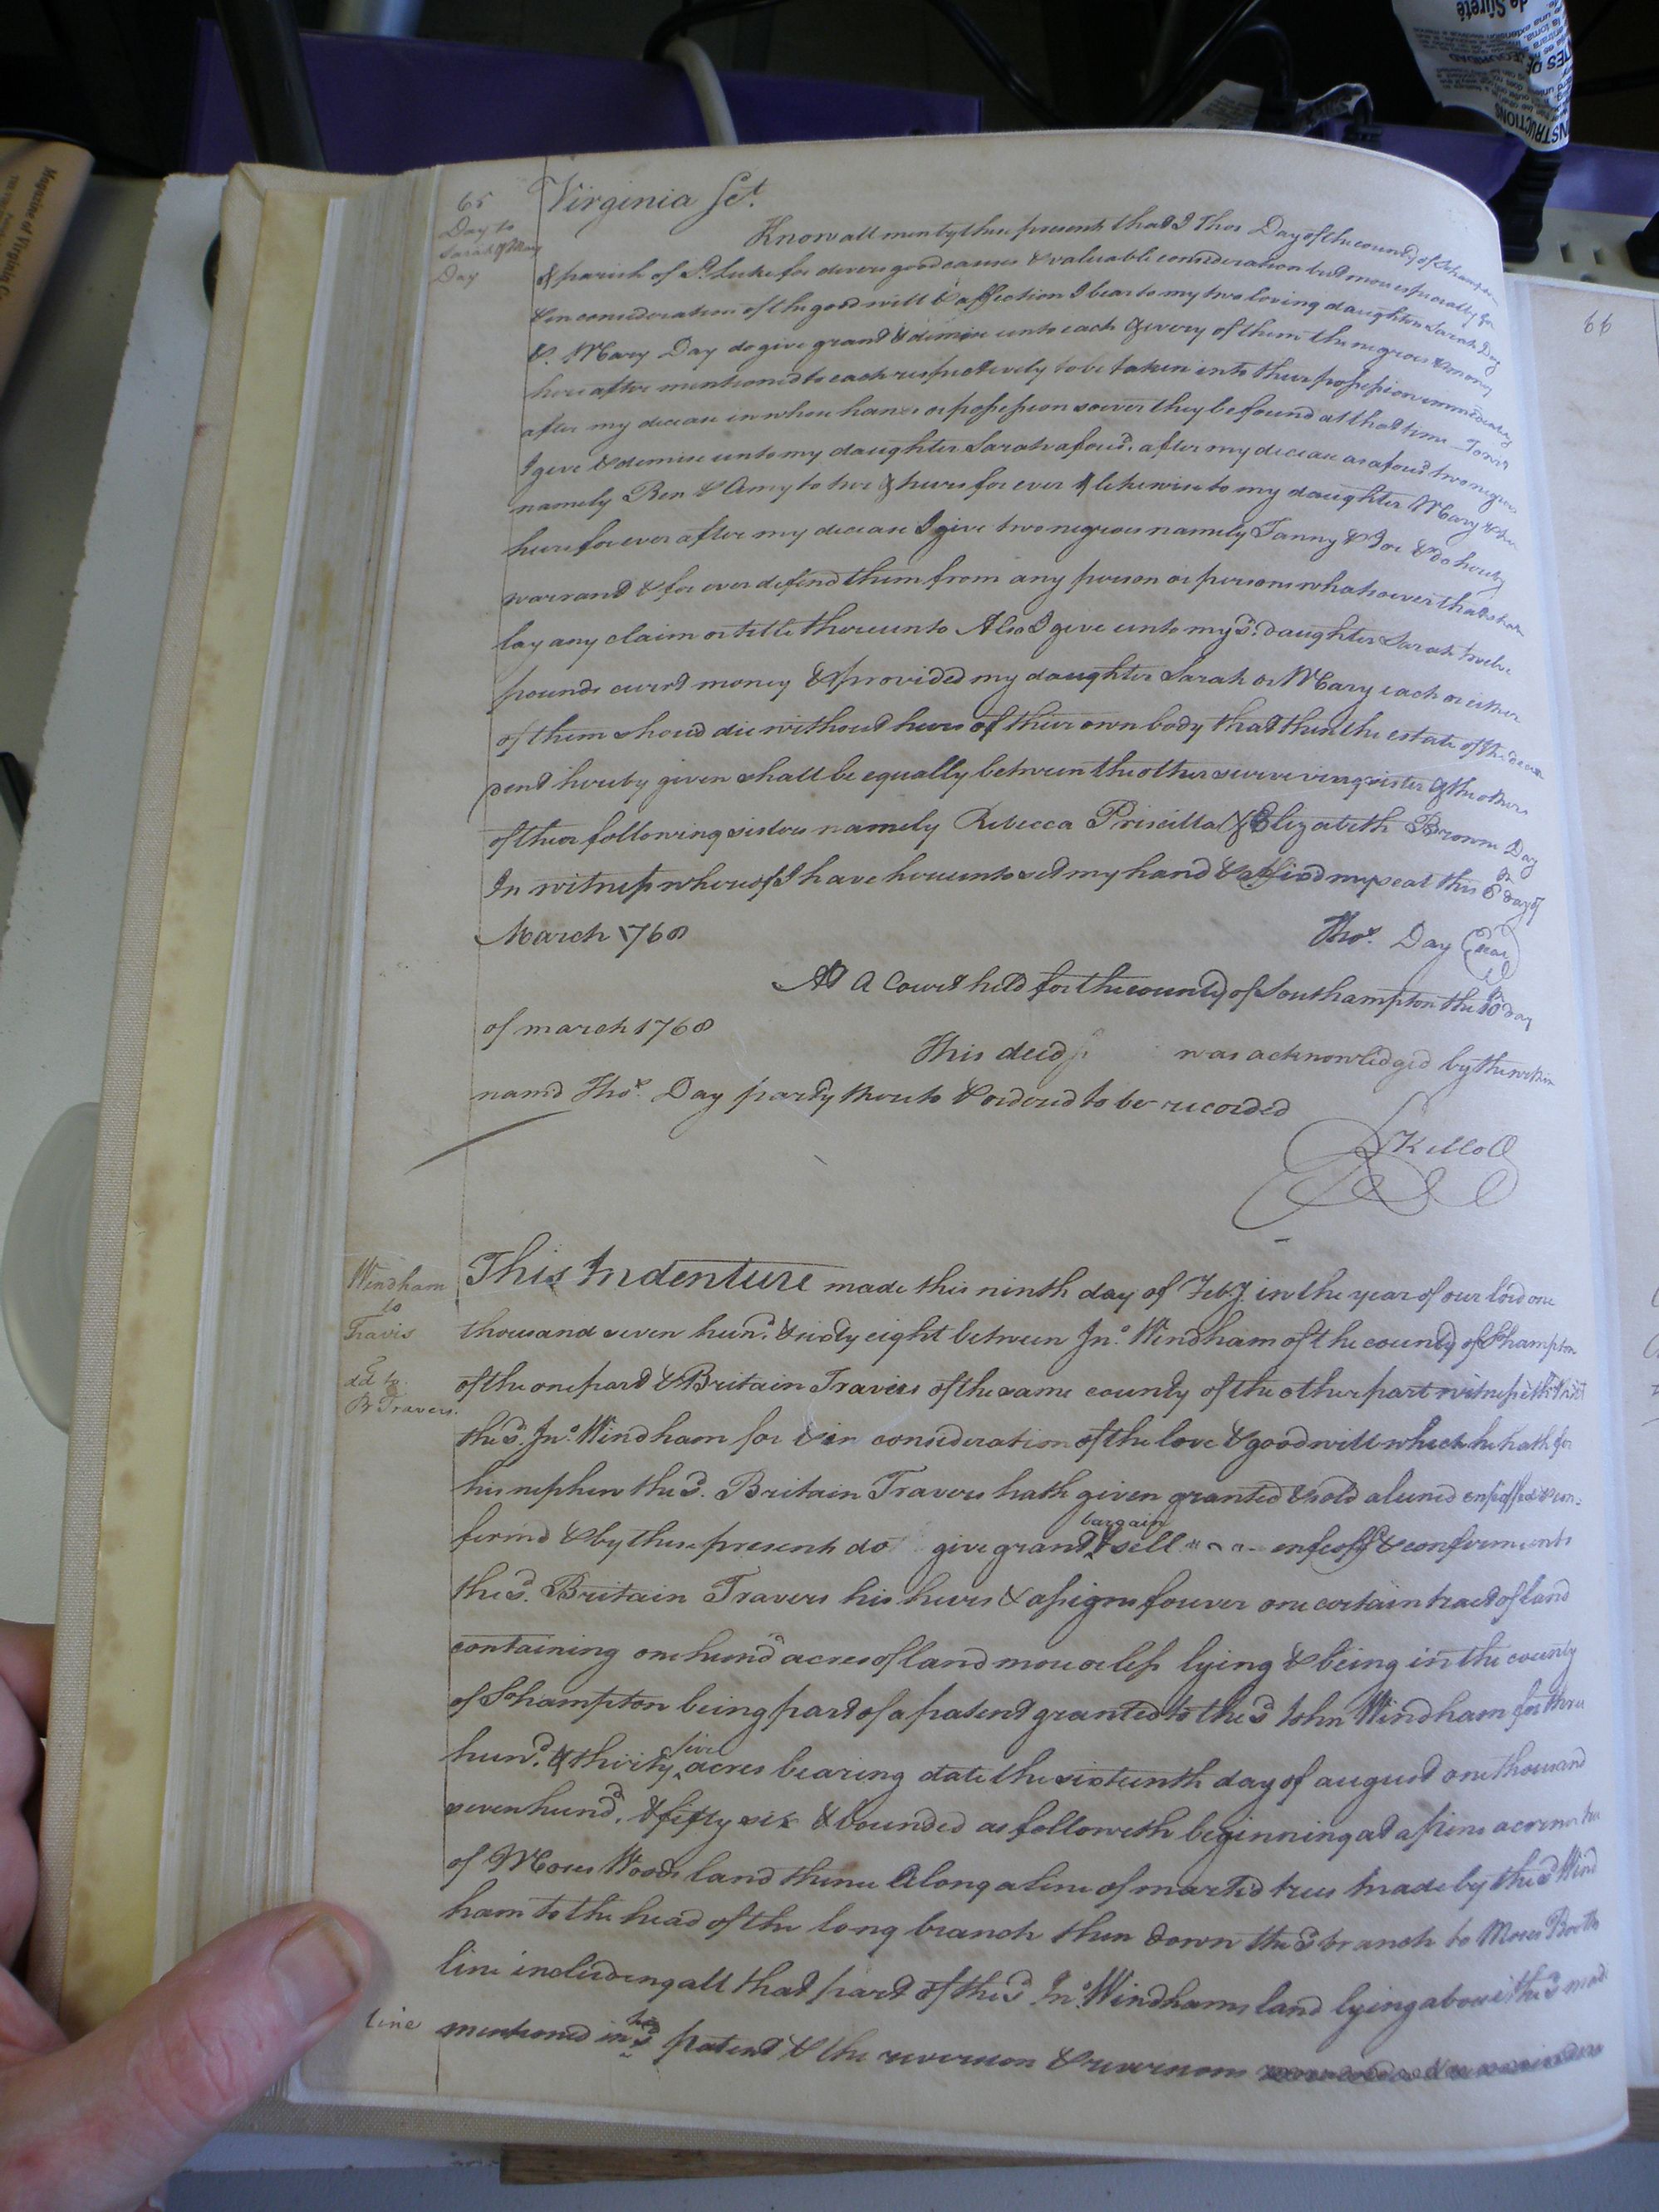 65
Day to
Sarah & Mary
Day
Virginia Sct.
Know all men by these presents that I Thos Day of the county of Sohampton
& parish of St. Luke for divers good causes & valuable consideration but more especially for
& in consideration of the good will & affection I bear to my two loving daughters Sarah Day
& Mary Day do give grant & demise unto each & every of them the negroes & money
here after mentioned to each respectively to be taken into their possession immediately
after my decease in whose hands or possession soever they be found at that time To wit
I give & demise unto my daughter Sarah aforesd. after my decease as aforesd two negroes
namely Ben & Amy to her & heirs for ever & likewise to my daughter Mary & her
heirs for ever after my decease I give two negroes namely Fanny & Joe & do hereby
warrand & for ever defend them from any person or persons whatsoever that shall
lay any claim or title thereunto Also I give unto my sd. daughter Sarah twelve
pounds currt money & provided my daughter Sarah or Mary each or either
of them shoud die without heirs of thier own body that then the estate of the
dent hereby given shall be equally between the other surviving sister & the others
of their following sisters namely Rebecca Priscilla & Elizabeth Brown Day
In witness whereof I have hereunto set my hand & affixd my seal this 8th day of
March 1768
Thos. Day Seal
At A Court held for the county of Southampton the 10th day
of march 1768
This deed was acknowledged by the within
namd Thos. Day party thereto & ordered to be recorded
R Kello
Windham
to
Travis
dd to
Br Travers.
This Indenture made this ninth day of Feby. in the year of our lord one
thousand seven hund. & sixty eight between Jno. Windham of the county of Sohampton
of the one part & Britain Travers of the same county of the other part witnesseth that
the sd. Jno. Windham for & in consideration of the love & good will which he hath for
his nephew the sd. Britain Travers hath given granted & sold aliened enfeoffed & con=
firmd & by these presents do give grant bargain & sell enfeoff & confirm unto
the sd. Britain Travers his heirs & assigns forever one certain tract of land
containing one hund acres of land more or less lying & being in the county
of Sohampton being part of a patent granted to the sd John Windham for three
hund. & thirty five acres bearing date the sixteenth day of august one thousand
seven hund. & fifty six & bounded as followeth beginning at a pine a corner tree
of Moses Woods land thence Along a line of markd trees made by the sd Wind
ham to the head of the long branch then down the sd branch to Moses Booths
line including all that part of the sd Jno. Windhams land lying above the sd
line mentioned in sd patent & the reversion & reversions
66